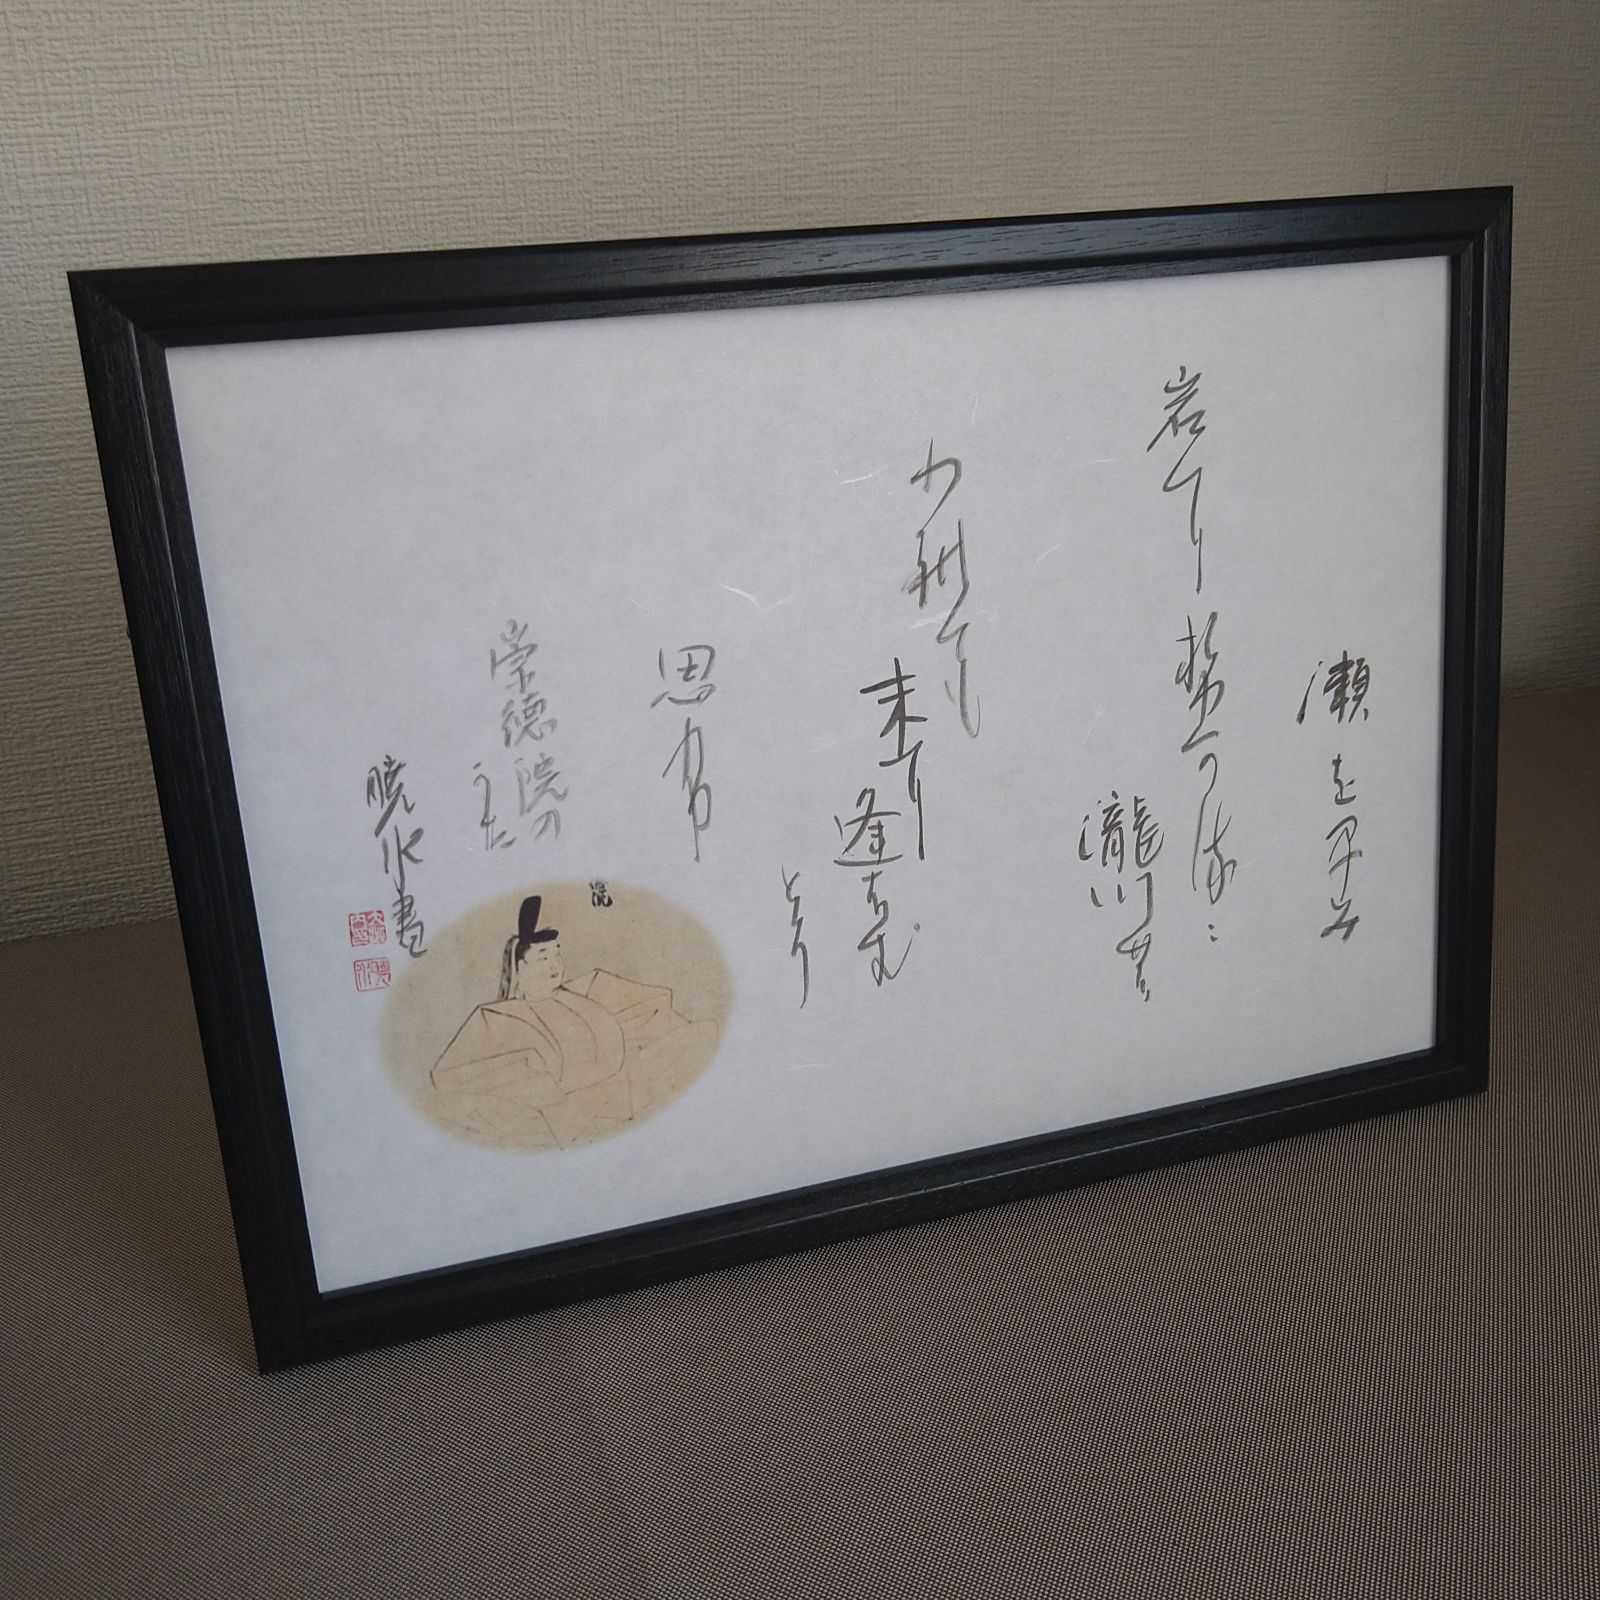 瀬を早み
岩にせかるゝ
瀧川の
われても
末に逢はむ
とそ
思ふ
崇徳院の
うた
暁水書
院